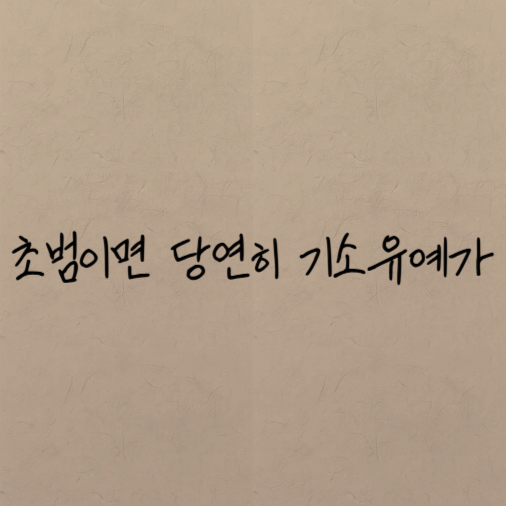 초범이면 당연히 기소유예가